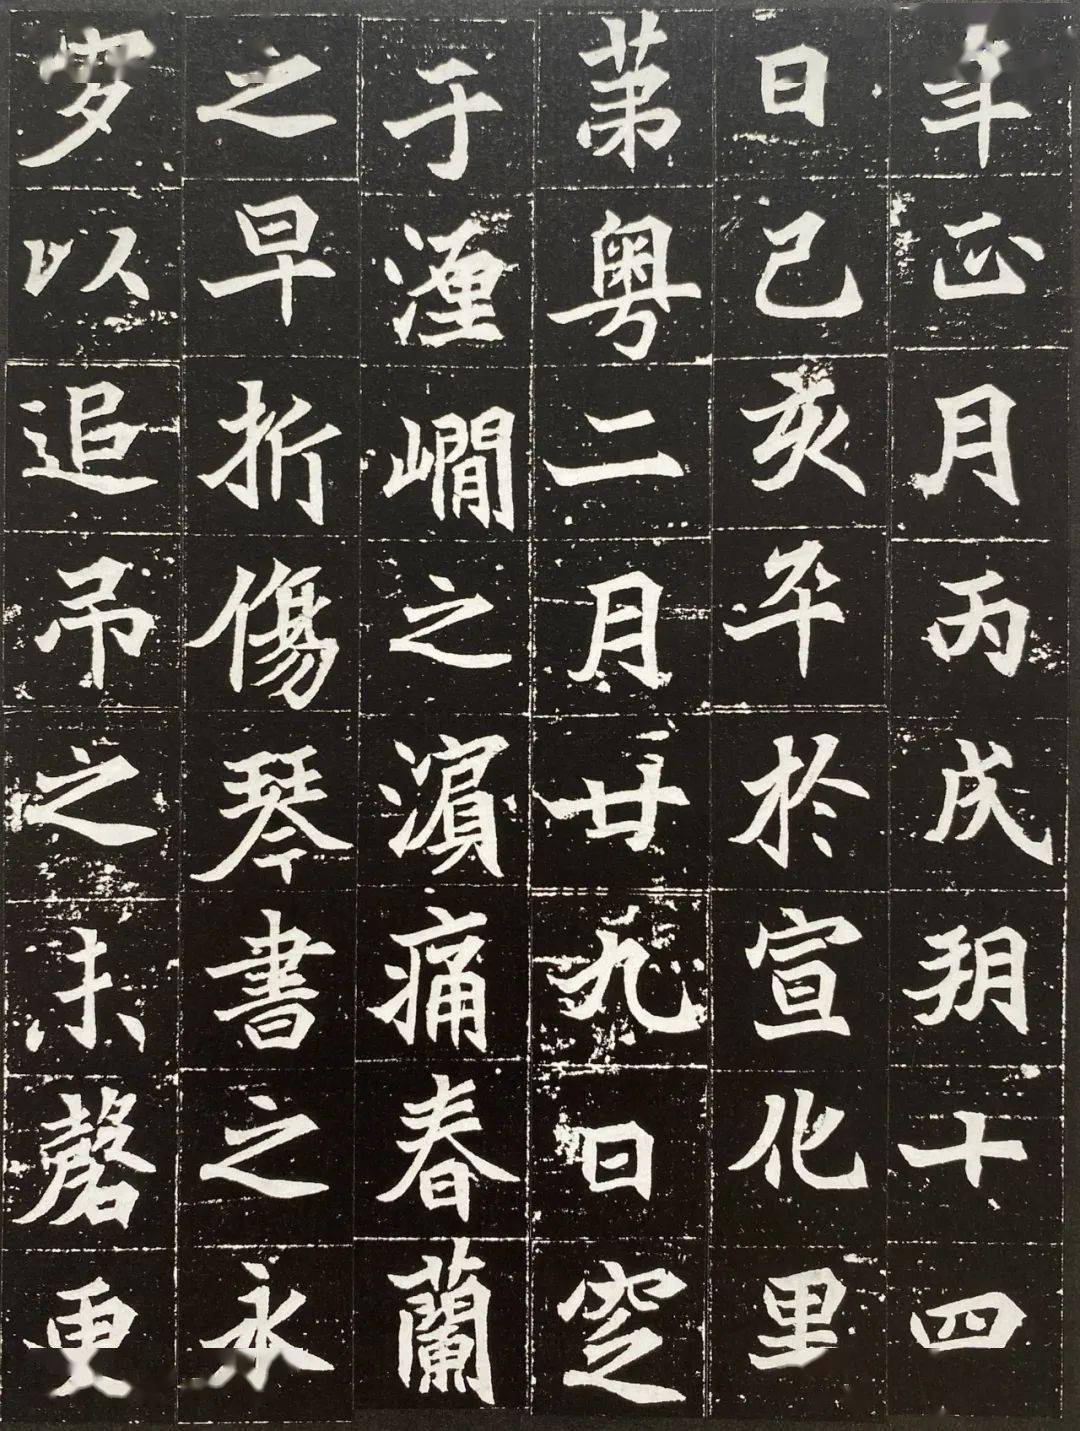 年正月丙戌朔十四
日己亥卒於宣化里
第粤二月廿九日窆
于瀍澗之濱痛春蘭
之早折傷琴書之永
穸以追吊之未磬更